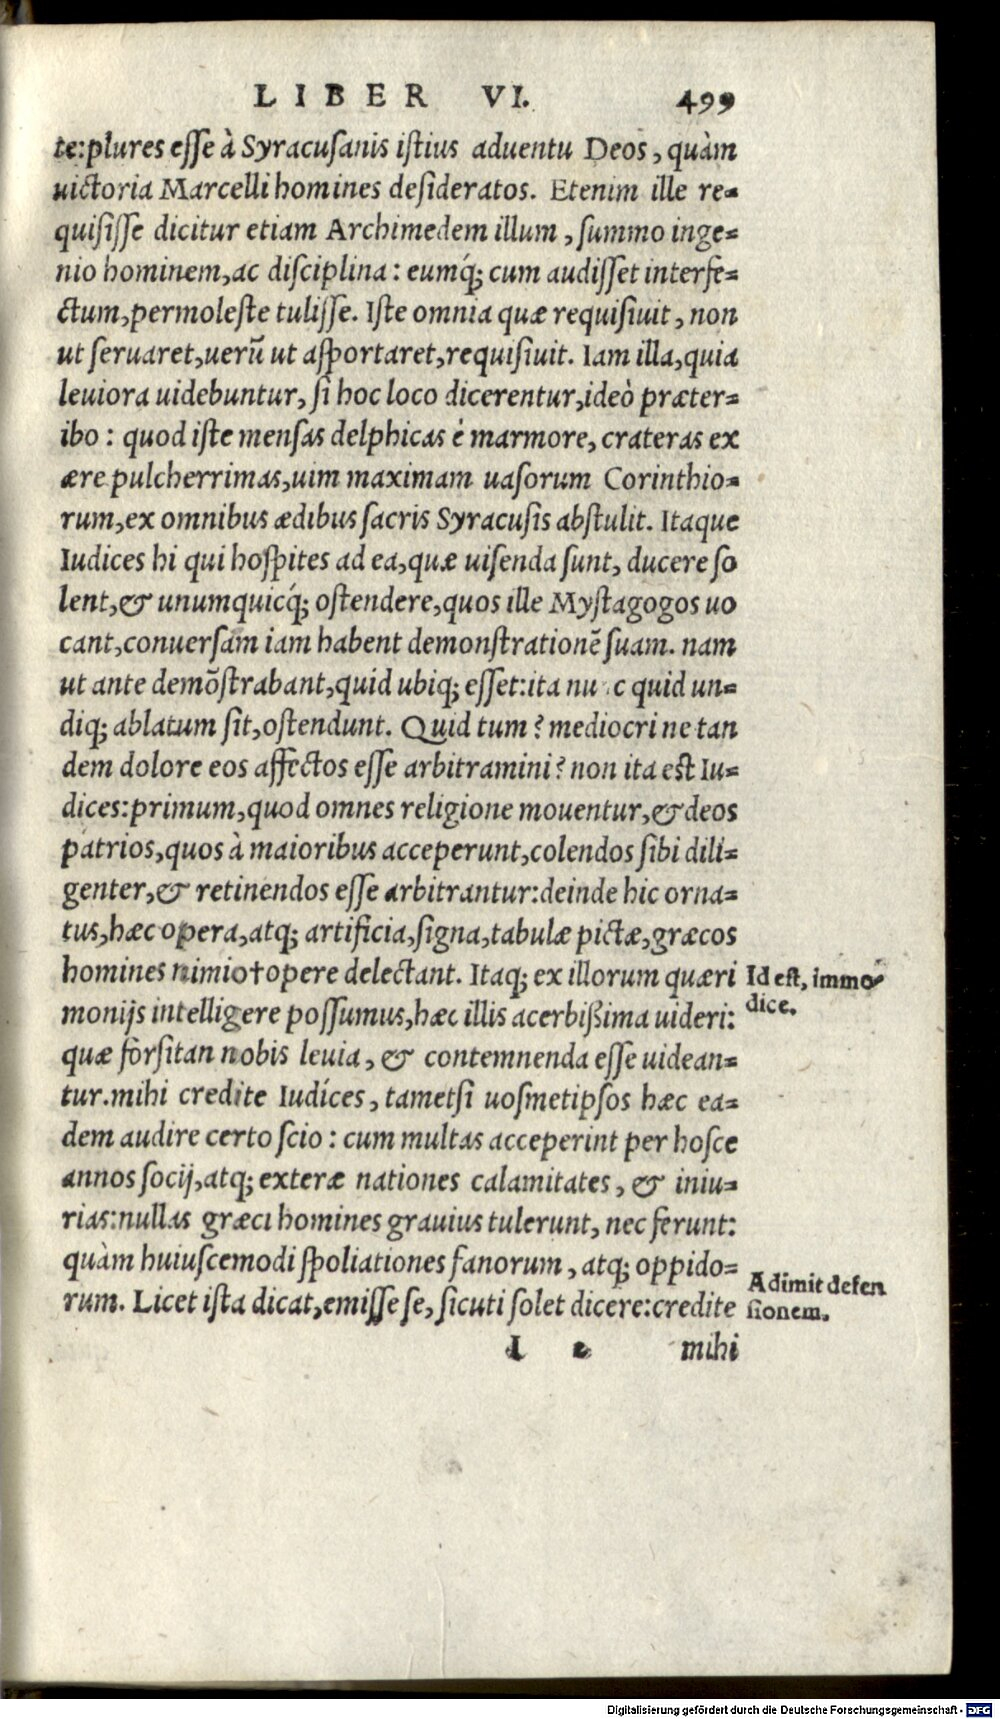 LIBER VI. 499
te:plures esse à Syracusanis istius aduentu Deos, quàm
uictoria Marcelli homines desideratos. Etenim ille re=
quisisse dicitur etiam Archimedem illum, summo inge=
nio hominem, ac disciplina: eumq́; cum audisset interfe=
ctum, permoleste tulisse. Iste omnia quæ requisiuit, non
ut seruaret, uerū ut asportaret, requisiuit. Iam illa, quia
leuiora uidebuntur, si hoc loco dicerentur, ideò præter=
ibo: quod iste mensas delphicas è marmore, crateras ex
ære pulcherrimas, uim maximam uasorum Corinthio=
rum, ex omnibus ædibus sacris Syracusis abstulit. Itaque
Iudices hi qui hospites ad ea, quæ uisenda sunt, ducere so
lent, & unumquicq́; ostendere, quos ille Mystagogos uo
cant, conuersam iam habent demonstrationē suam. nam
ut ante demōstrabant, quid ubiq; esset: ita nu c quid un=
diq; ablatum sit, ostendunt. Quid tum? mediocri ne tan
dem dolore eos affectos esse arbitramini? non ita est Iu=
dices: primum, quod omnes religione mouentur, & deos
patrios, quos à maioribus acceperunt, colendos sibi dili=
genter, & retinendos esse arbitrantur: deinde hic orna=
tus, hæc opera, atq; artificia, signa, tabulæ pictæ, græcos
homines nimio†opere delectant. Itaq; ex illorum quæri
monijs intelligere possumus, hæc illis acerbißima uideri:
quæ forsitan nobis leuia, & contemnenda esse uidean=
tur. mihi credite Iudices, tametsi uosmetipsos hæc ea=
dem audire certo scio: cum multas acceperint per hosce
annos socij, atq; exteræ nationes calamitates, & iniu=
rias: nullas græci homines grauius tulerunt, nec ferunt:
quàm huiuscemodi spoliationes fanorum, atq; oppido=
rum. Licet ista dicat, emisse se, sicuti solet dicere: credite
mihi
Id est, immo
dice.
Adimit defen
sionem.
Digitalisierung gefördert durch die Deutsche Forschungsgemeinschaft - DFG